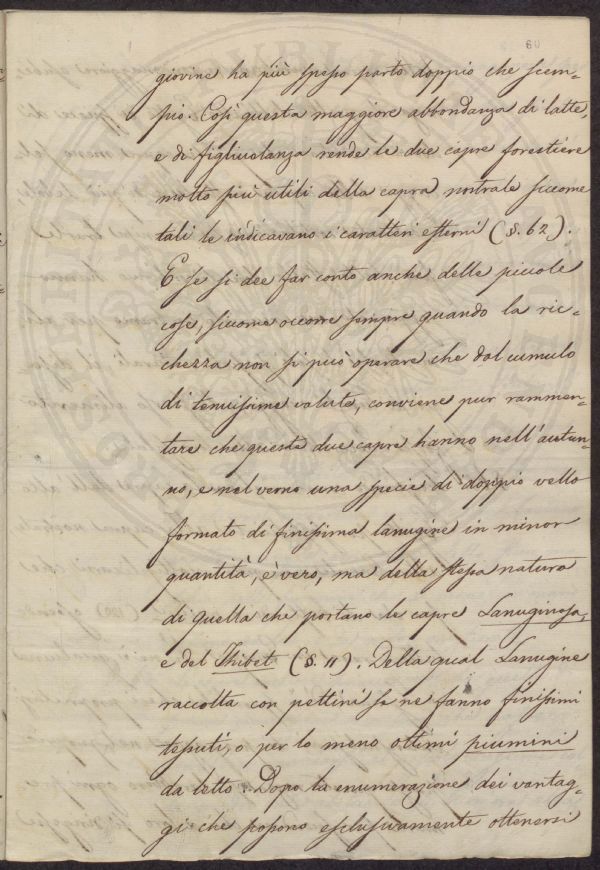 60
giovine ha più spesso parto doppio che scem-
pio. Così questa maggiore abbondanza di latte,
e di figliuolanza rende le due capre forestiere
molto più utili della capra nostrale siccome
tali le indicavano i caratteri esterni (§. 62).
E se si dee far conto anche delle piccole
cose, siccome occorre sempre quando la ric-
chezza non si può operare che dal cumulo
di tenuissime valute, conviene pur rammen-
tare che queste due capre hanno nell'autun-
no, e nel verno una specie di doppio vello
formato di finissima lanugine in minor
quantità, è vero, ma della stessa natura
di quella che portano le capre Lanuginosa,
e del Thibet (§. 11). Della qual Lanugine
raccolta con pettini se ne fanno finissimi
tessuti, o per lo meno ottimi piumini
da letto. Dopo la enumerazione dei vantag-
gi che possono esclusivamente ottenersi